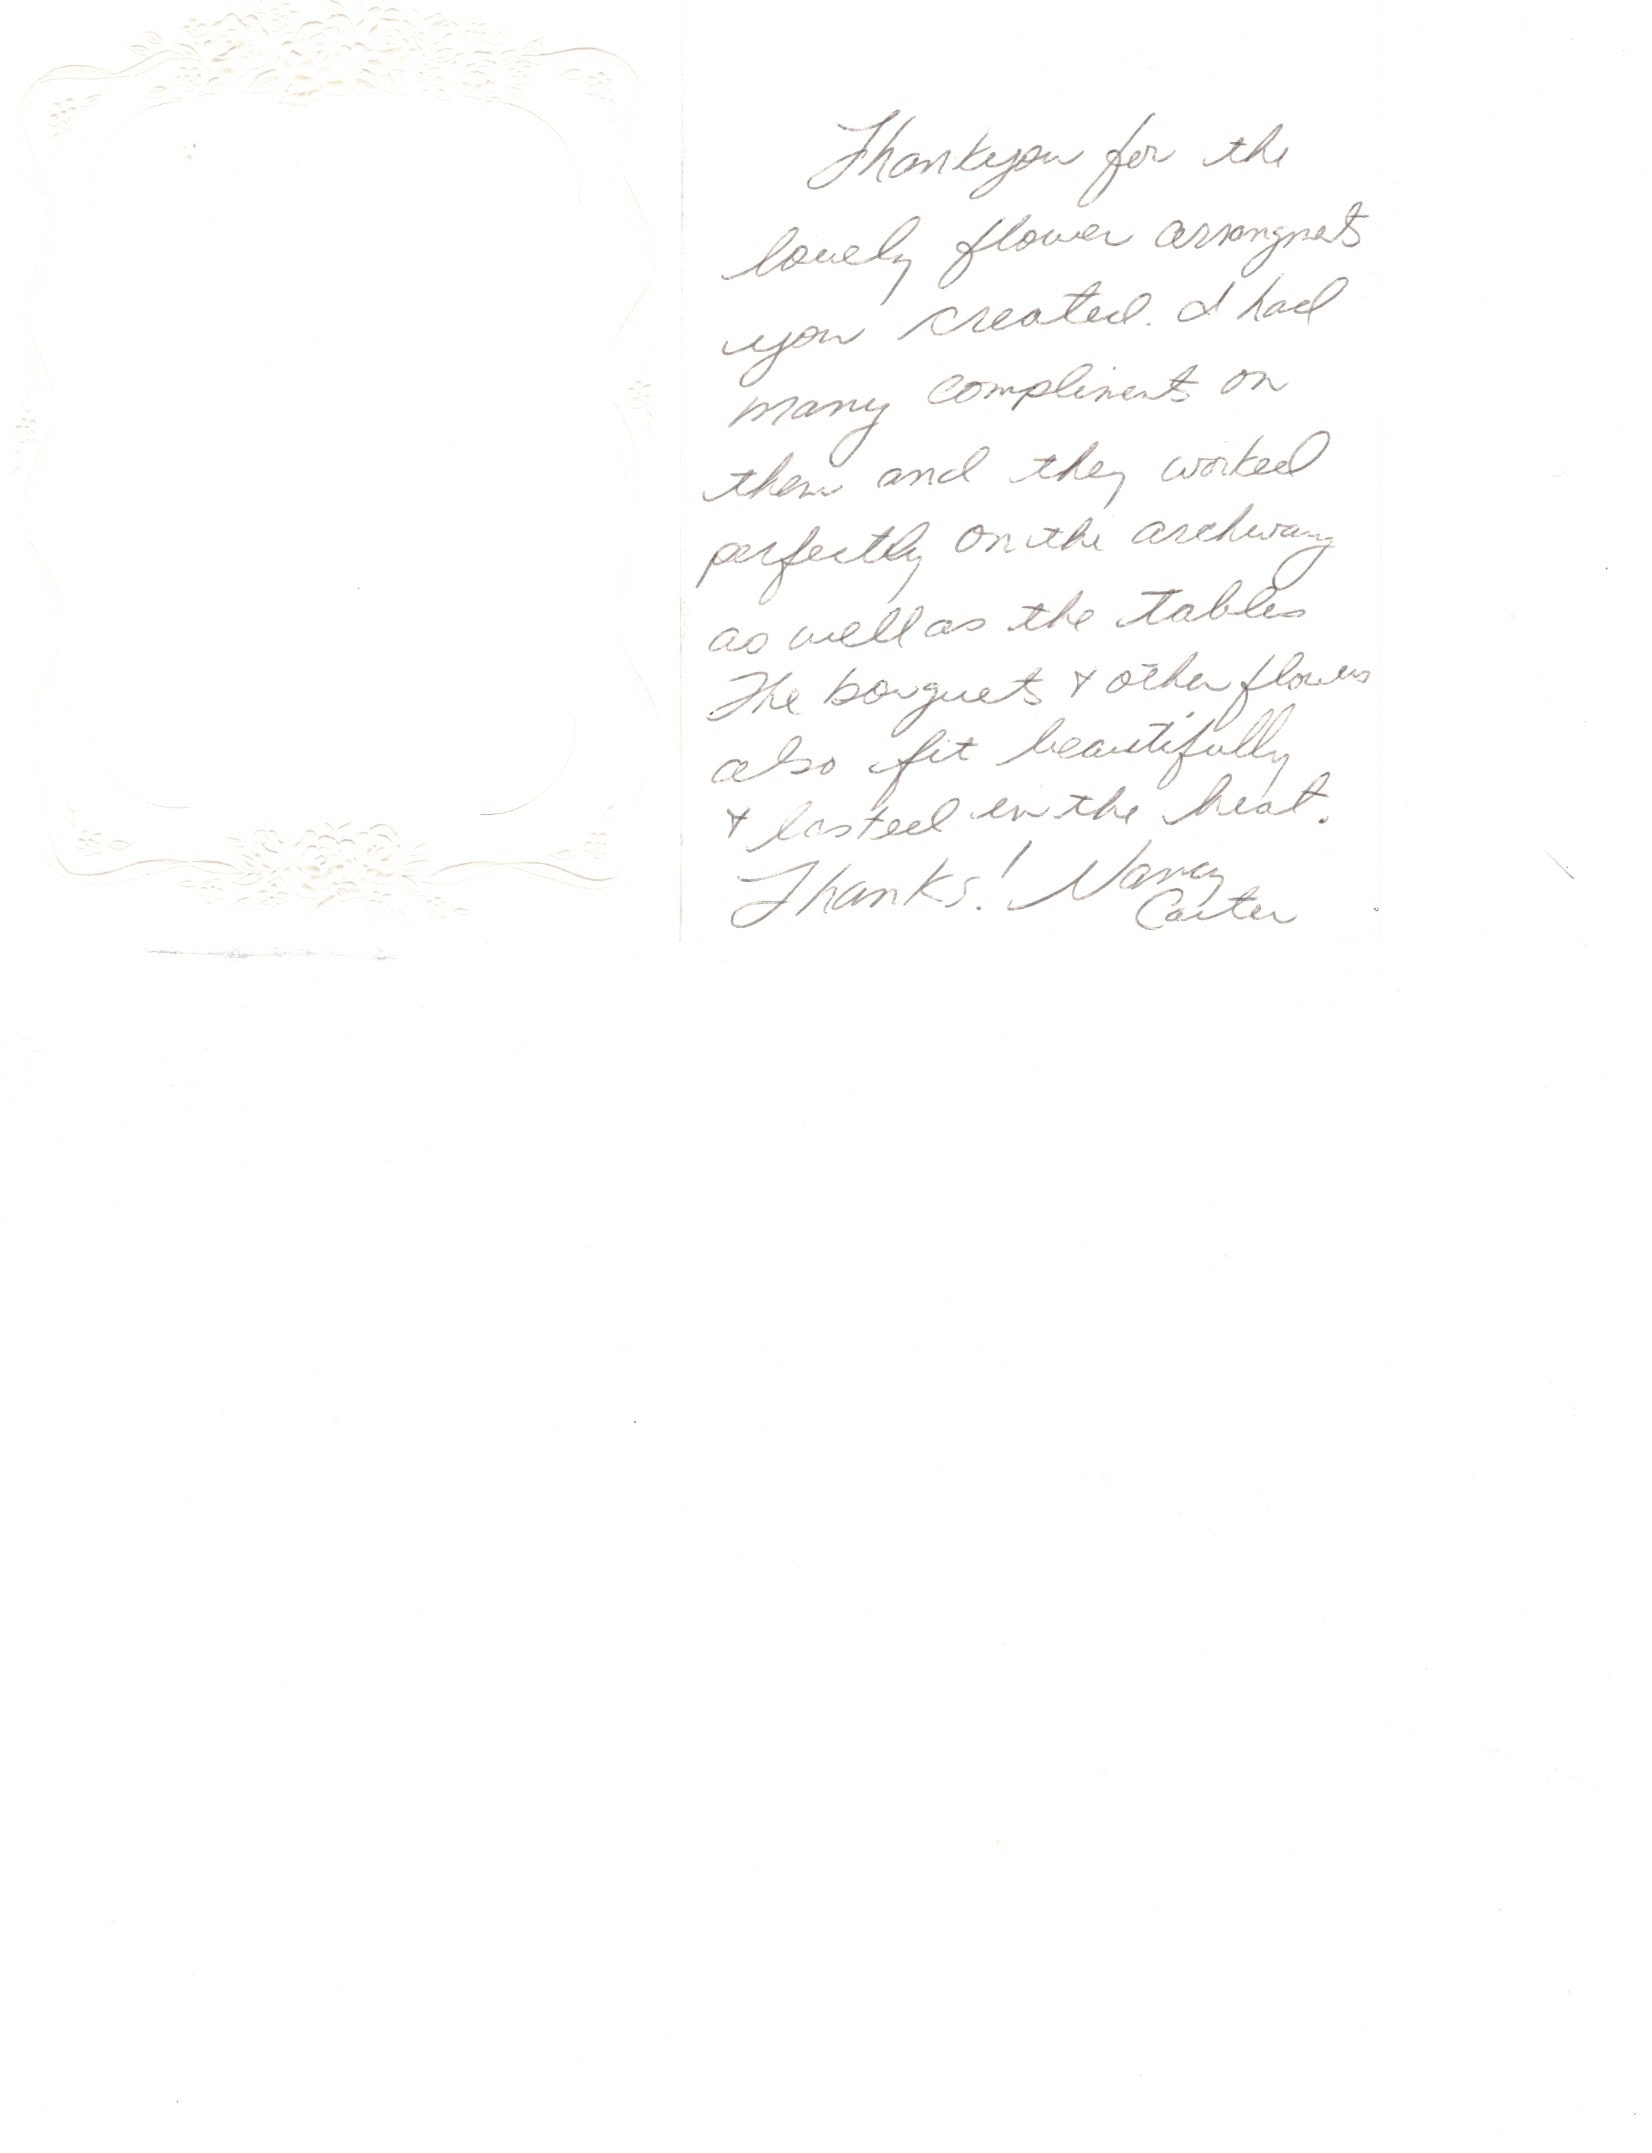 Thankyou for the
lovely flower arrangmets
you created. I had
many compliments on
them and they worked
perfectly on the archway
as well as the tables
The bouquets & other flowers
also fit beautifully
& lasted in the heat.
Thanks! Nancy
Carter